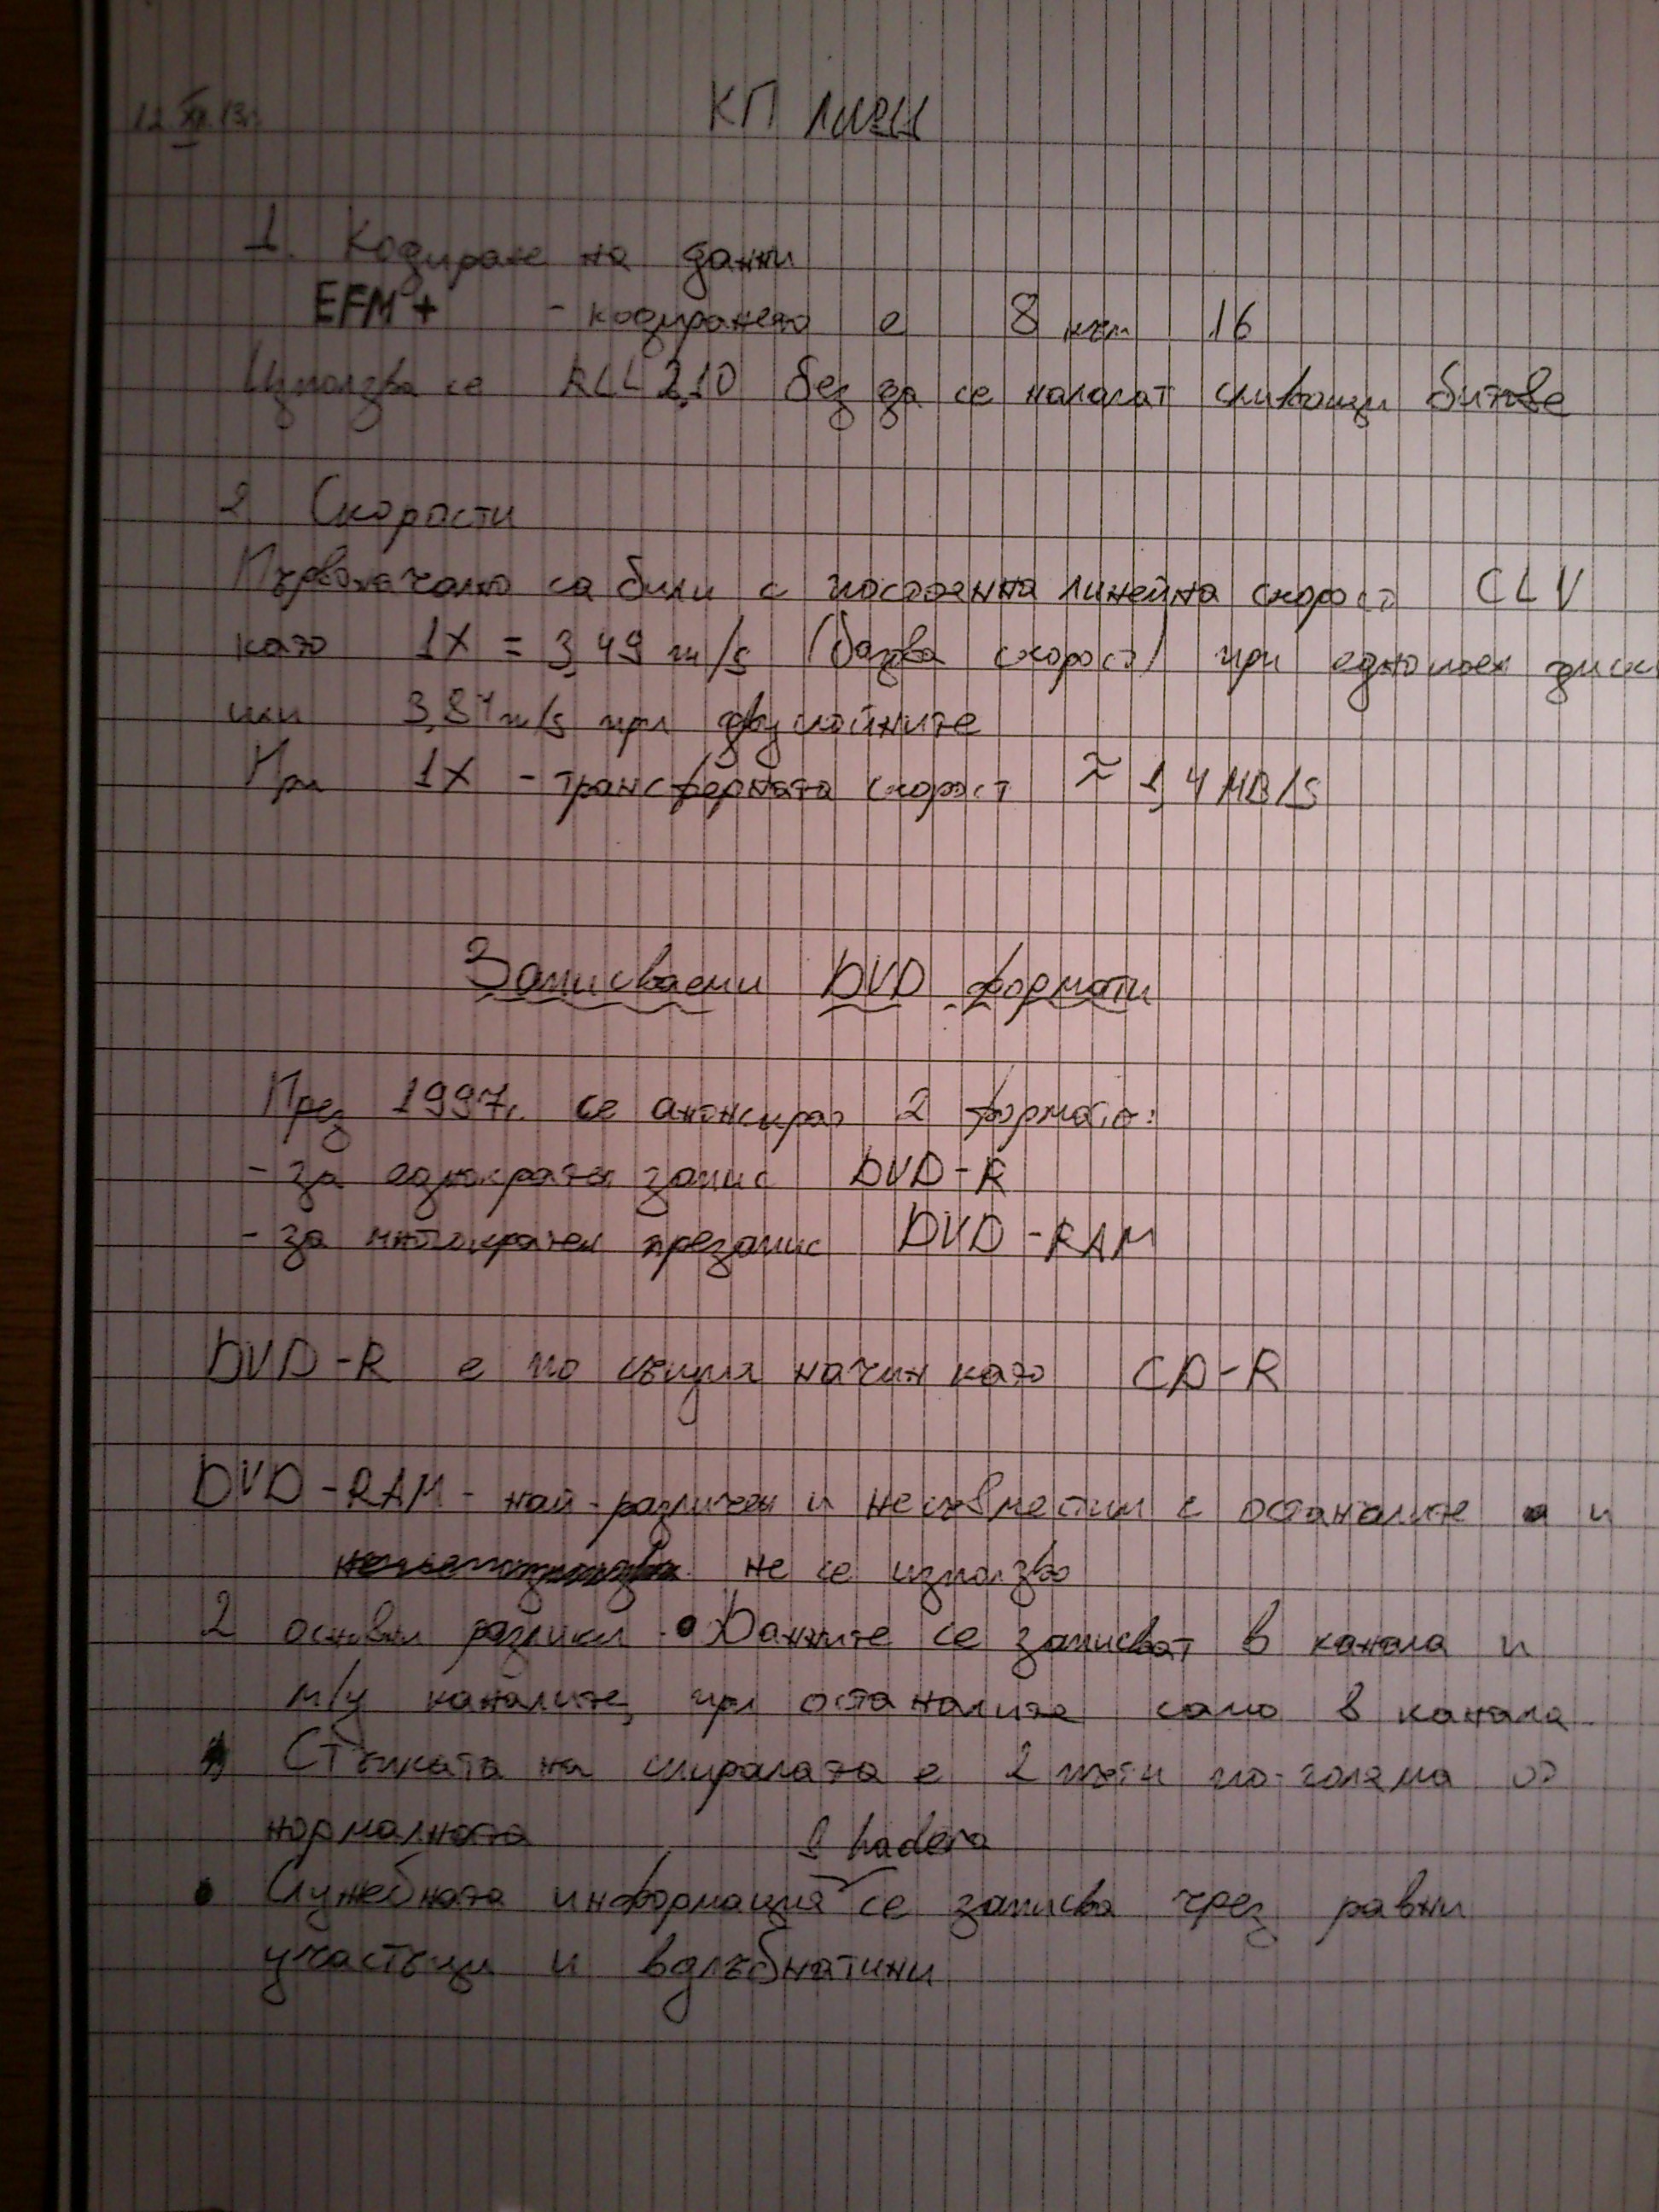 12.XII.13г.
КП лекц
1. Кодиране на данни
EFM+ - кодирането е 8 към 16
Използва се RLL 2,10 без да се налагат сливащи битове
2 Скорости
Първоначално са били с постоянна линейна скорост CLV
като 1X = 3,49 m/s (базова скорост) при еднослоен диск
или 3,84 m/s при двуслойните
При 1X - трансферната скорост ≈ 1,4 MB/s
Записваеми DVD формати
През 1997г. се анонсират 2 формата:
- за еднократен запис DVD-R
- за многократен презапис DVD-RAM
DVD-R е по същия начин като CD-R
DVD-RAM - най-различен и несъвместим с останалите и
не се използва
2 основни разлики • Данните се записват в канала и
м/у каналите, при останалите само в канала
Стъпката на спиралата е 2 пъти по-голяма от
нормалната
в hadera
• Служебната информация се записва чрез равни
участъци и вдлъбнатини